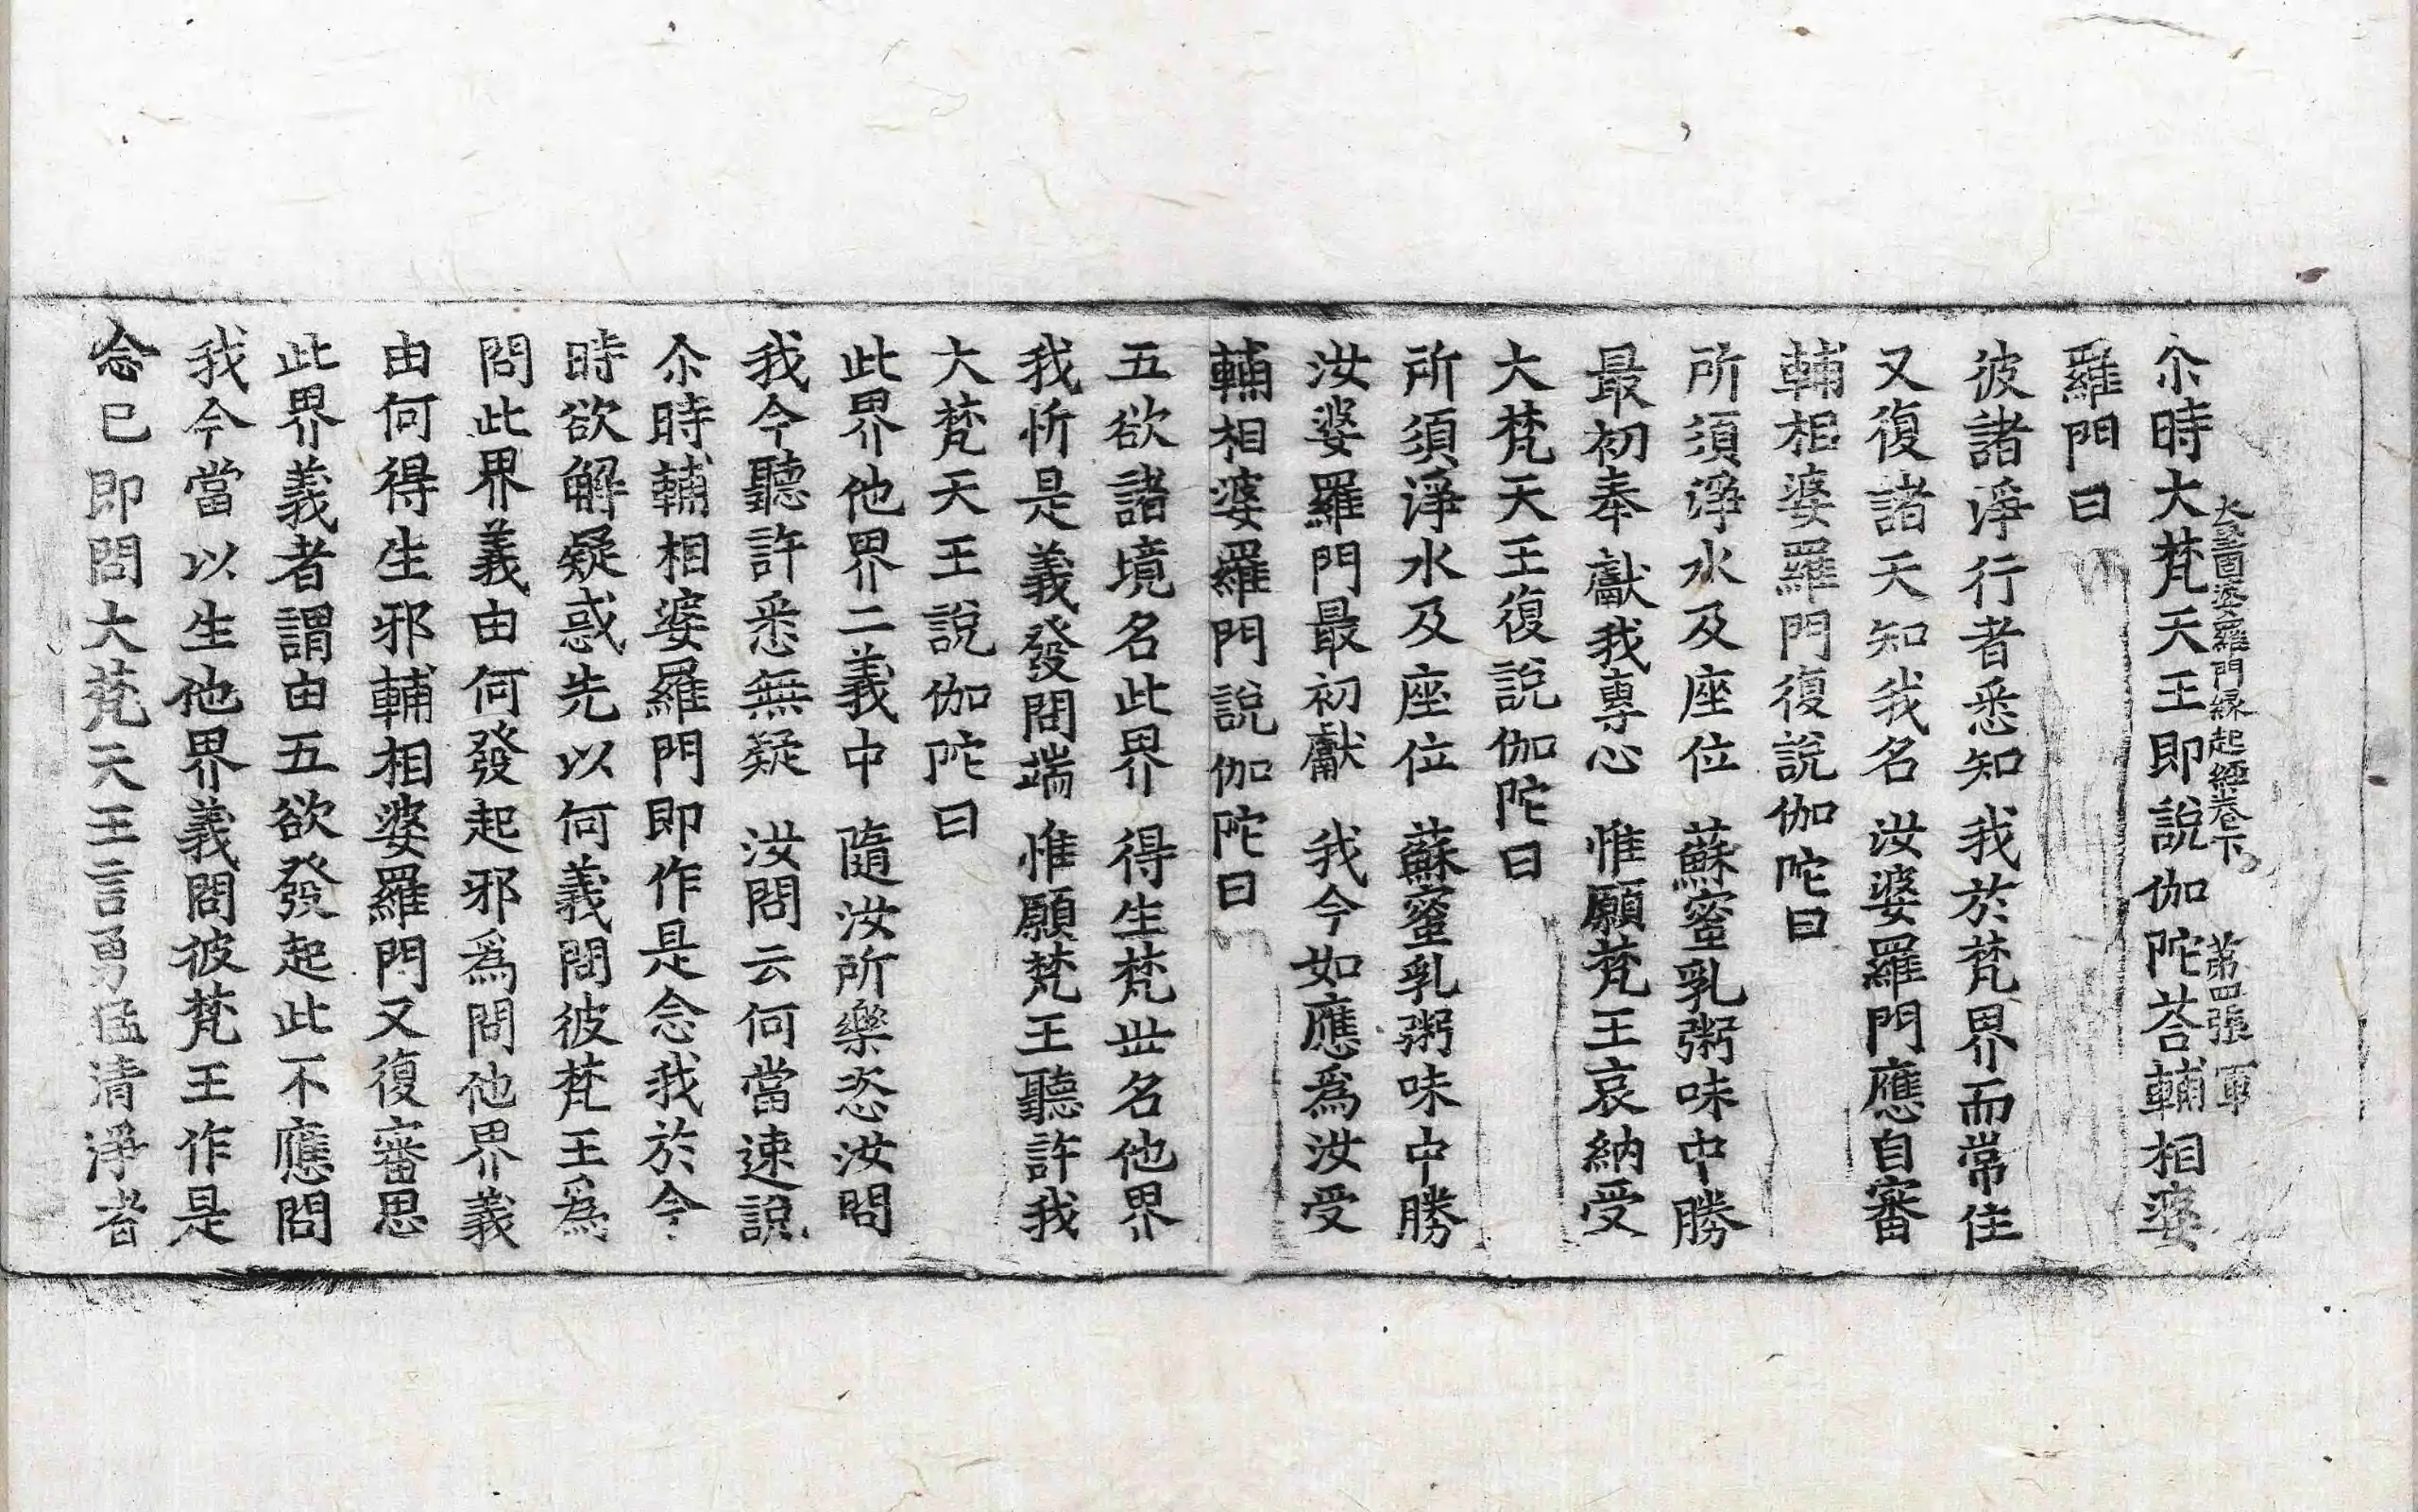 大堅固婆羅門緣起經卷下 第四張 軍
尒時大梵天王即說伽陀荅輔相婆
羅門曰
彼諸淨行者悉知 我於梵界而常住
又復諸天知我名 汝婆羅門應自審
輔相婆羅門復說伽陀曰
所須淨水及座位 蘇蜜乳粥味中勝
最初奉獻我專心 惟願梵王哀納受
大梵天王復說伽陀曰
所須淨水及座位 蘇蜜乳粥味中勝
汝婆羅門最初獻 我今如應爲汝受
輔相婆羅門說伽陀曰
五欲諸境名此界 得生梵世名他界
我忻是義發問端 惟願梵王聽許我
大梵天王說伽陀曰
此界他界二義中 隨汝所樂恣汝問
我今聽許悉無疑 汝問云何當速說
尒時輔相婆羅門即作是念我於今
時欲解疑惑先以何義問彼梵王爲
問此界義由何發起邪爲問他界義
由何得生邪輔相婆羅門又復審思
此界義者謂由五欲發起此不應問
我今當以生他界義問彼梵王作是
念已即問大梵天王言勇猛清淨者